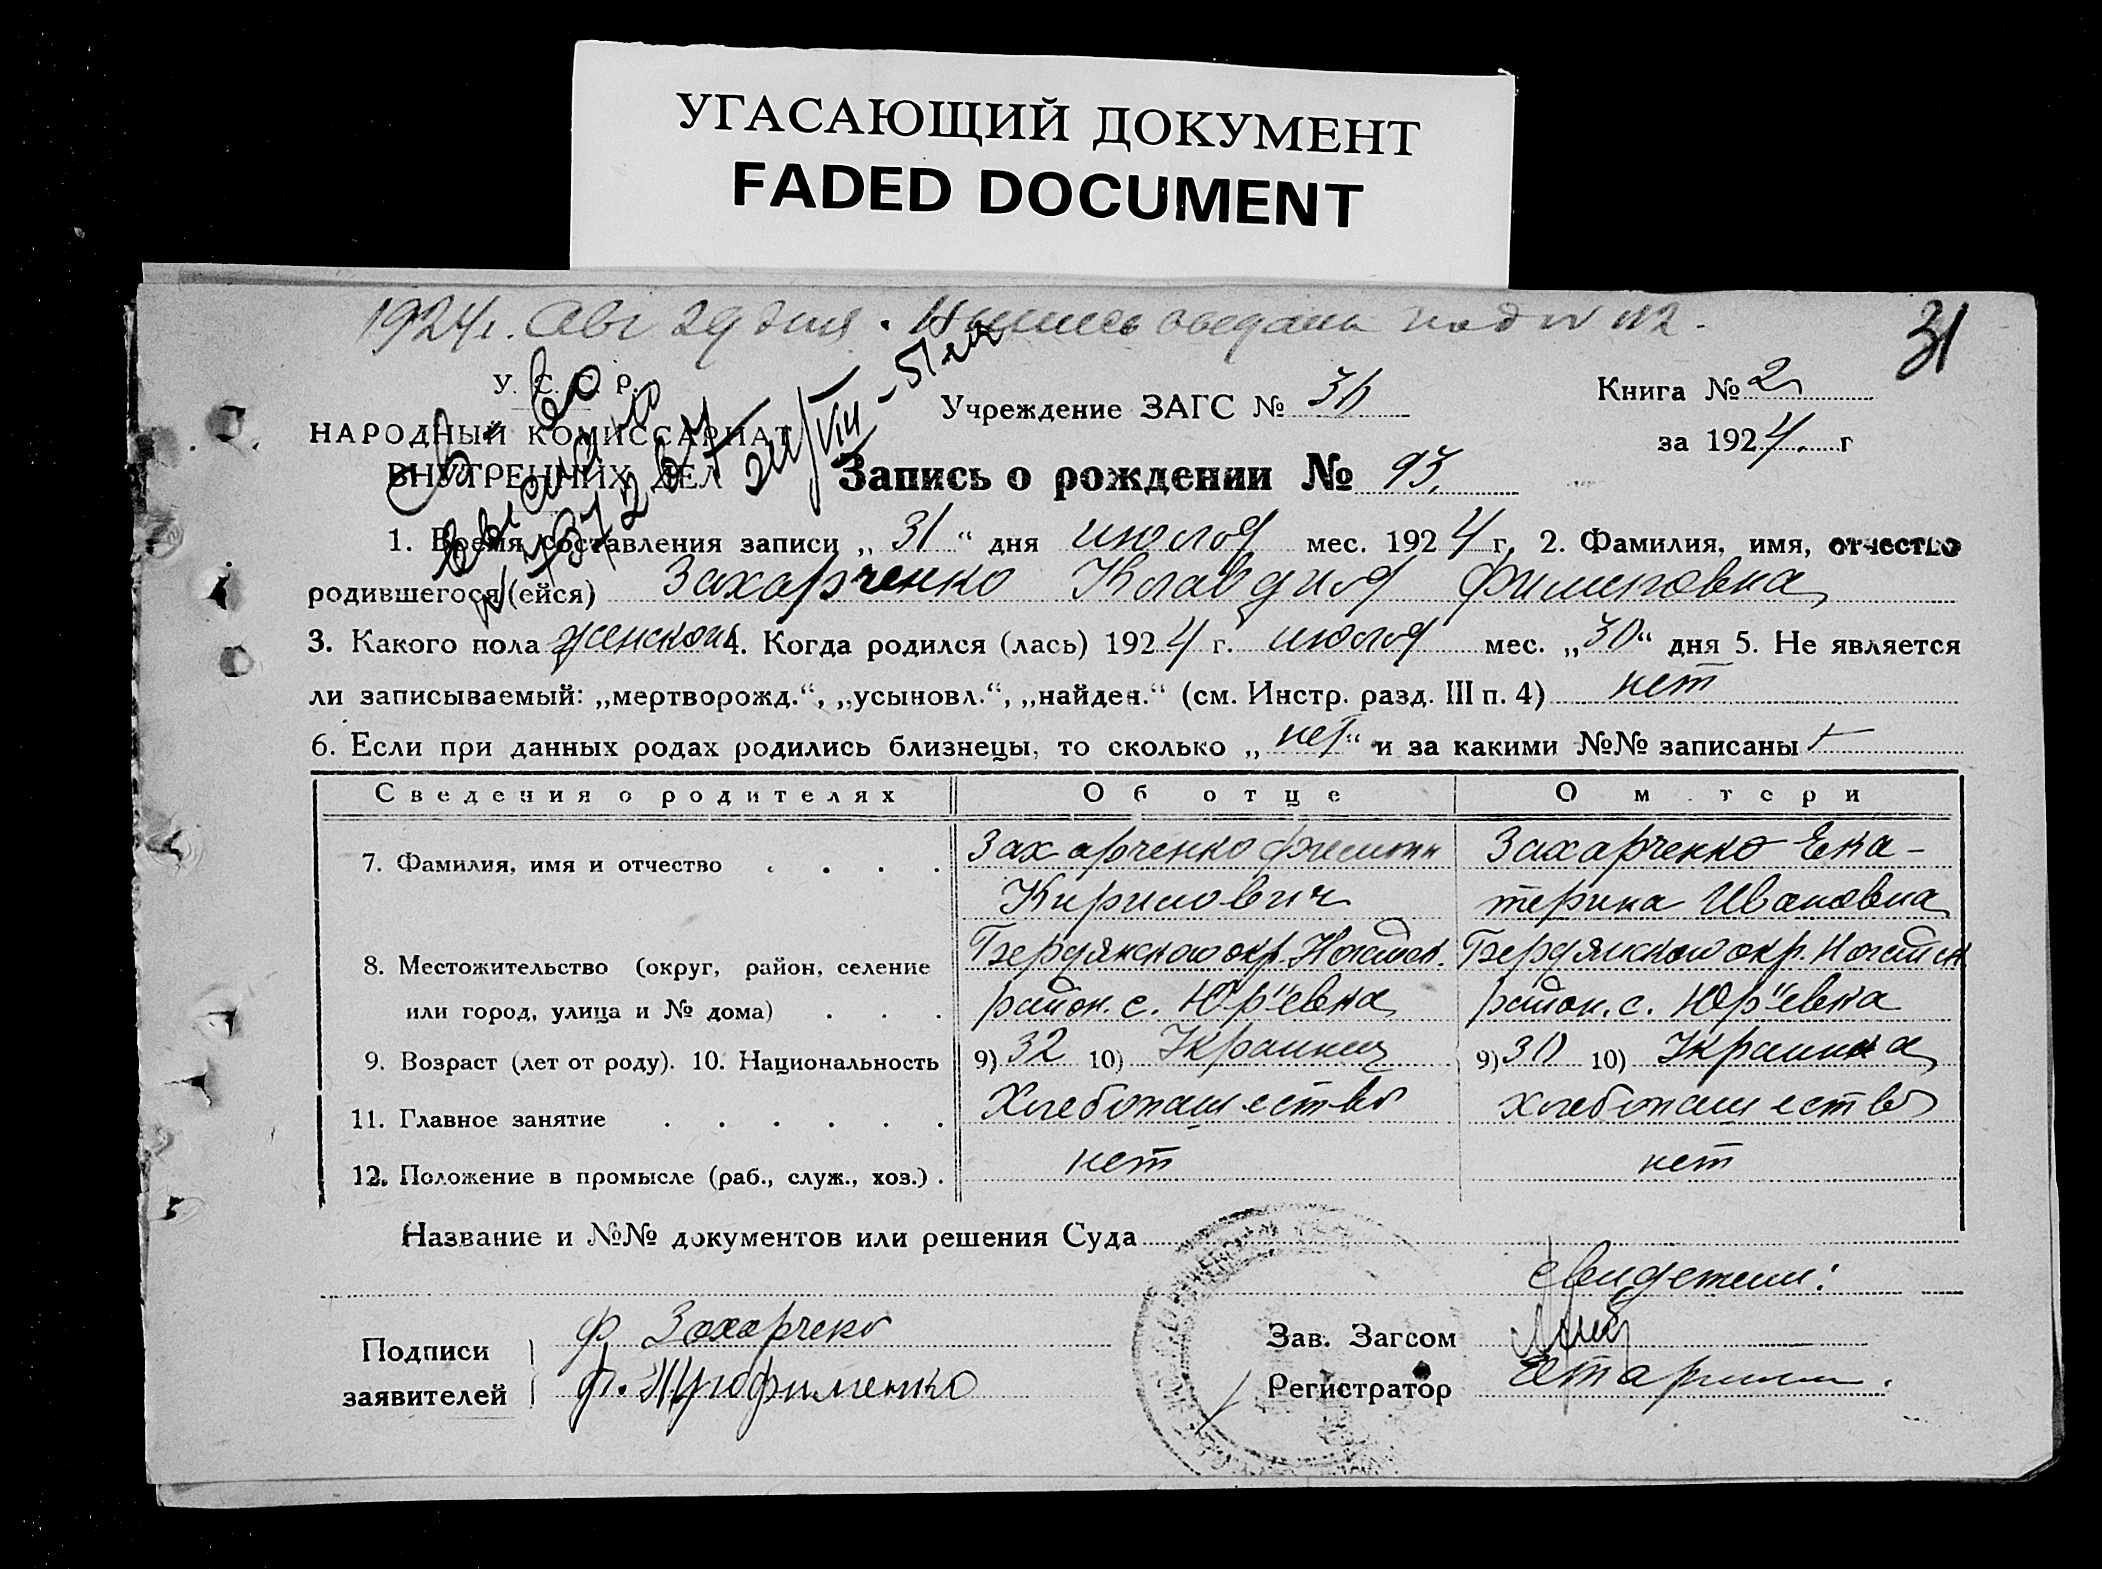 УГАСАЮЩИЙ ДОКУМЕНТ
FADED DOCUMENT
1924г. Авг 29 дня. под № 112.
31
У. С. С. Р.
НАРОДНЫЙ КОМИССАРИАТ
ВНУТРЕННИХ ДЕЛ
Св-во
выдано
24/VIII-51
Учреждение ЗАГС № 30
Книга № 2
за 1924 г
Запись о рождении № 93.
1. Время составления записи „ 31 “ дня июля мес. 1924 г. 2. Фамилия, имя, отчество
родившегося (ейся) Захарченко Клавдия Филиповна
3. Какого пола женский 4. Когда родился (лась) 1924 г. июля мес. „30“ дня 5. Не является
ли записываемый: „мертворожд.“, „усыновл.“, „найден.“ (см. Инстр. разд. III п. 4) нет
6. Если при данных родах родились близнецы, то сколько „ нет “ и за какими №№ записаны
Сведения о родителях Об отце О м тери
7. Фамилия, имя и отчество . . . . Захарченко Филипп Захарченко Ека-
Кирилович терина Ивановна
8. Местожительство (округ, район, селение Бердянского окр. Ногайск. Бердянского окр. Ногайск
или город, улица и № дома) . . . район. с. Юр"евка район. с. Юр"евка
9. Возраст (лет от роду). 10. Национальность 9) 32 10) Украинец 9) 30 10) Украинка
11. Главное занятие . . . . . . Хлебопашество хлебопашество
12. Положение в промысле (раб., служ., хоз.) . нет нет
Название и №№ документов или решения Суда
Свидетели:
Подписи
заявителей
Ф. Захарчеко
Ф. Трофименко
Зав. Загсом
Регистратор